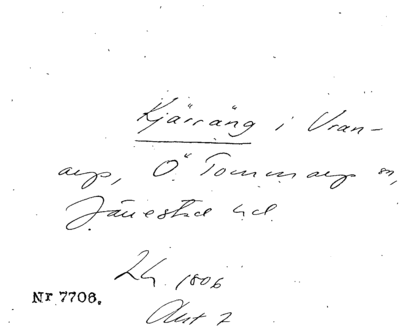 Kjärräng i Vran-
arp, Ö. Tommarp sn,
Järrestad hd
Lh 1806
Akt 7
Nr 7706.